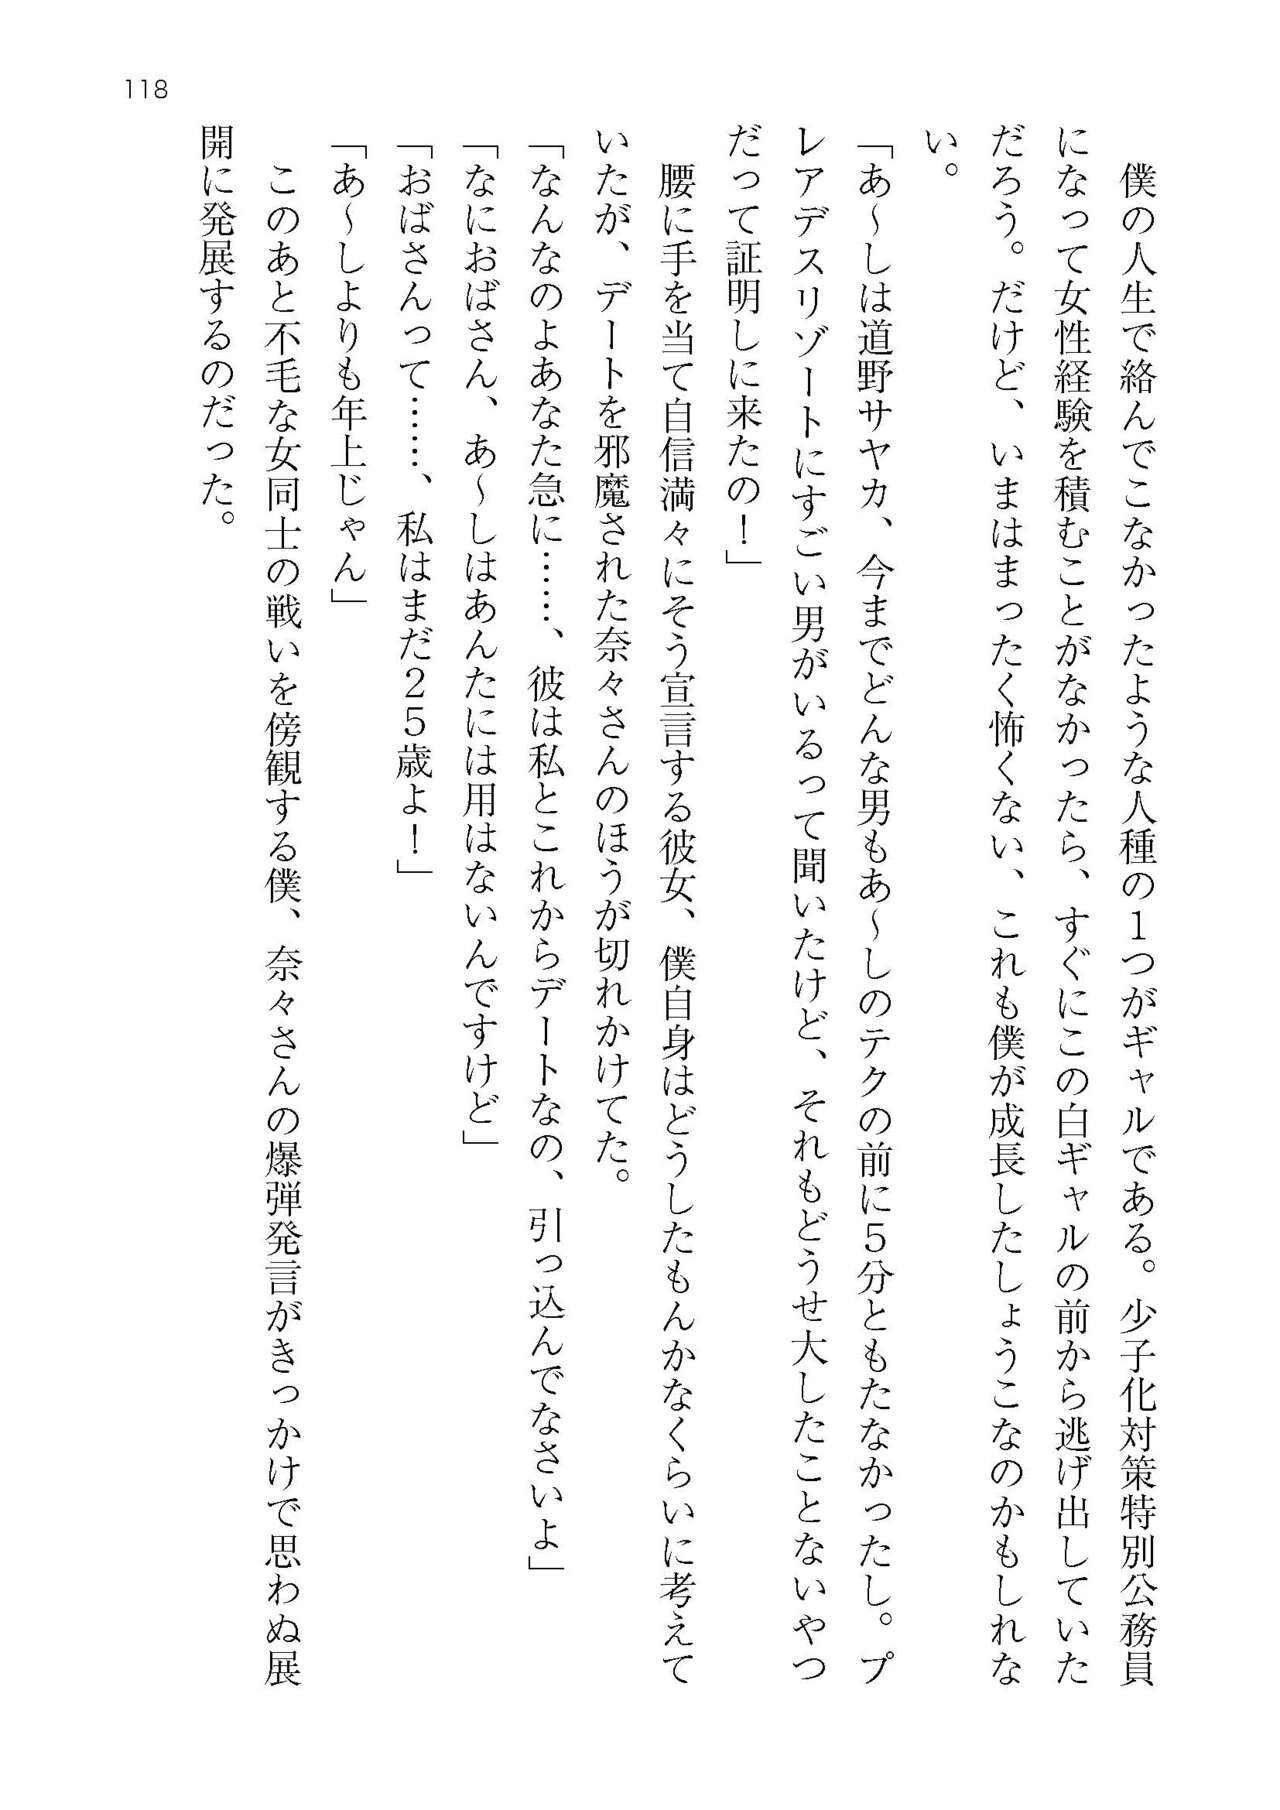 118
　僕の人生で絡んでこなかったような人種の1つがギャルである。少子化対策特別公務員
になって女性経験を積むことがなかったら、すぐにこの白ギャルの前から逃げ出していた
だろう。だけど、いまはまったく怖くない、これも僕が成長したしょうこなのかもしれな
い。
「あ～しは道野サヤカ、今までどんな男もあ～しのテクの前に5分ともたなかったし。プ
レアデスリゾートにすごい男がいるって聞いたけど、それもどうせ大したことないやつ
だって証明しに来たの！」
　腰に手を当て自信満々にそう宣言する彼女、僕自身はどうしたもんかなくらいに考えて
いたが、デートを邪魔された奈々さんのほうが切れかけてた。
「なんなのよあなた急に……、彼は私とこれからデートなの、引っ込んでなさいよ」
「なにおばさん、あ～しはあんたには用はないんですけど」
「おばさんって……、私はまだ２５歳よ！」
「あ～しよりも年上じゃん」
　このあと不毛な女同士の戦いを傍観する僕、奈々さんの爆弾発言がきっかけで思わぬ展
開に発展するのだった。